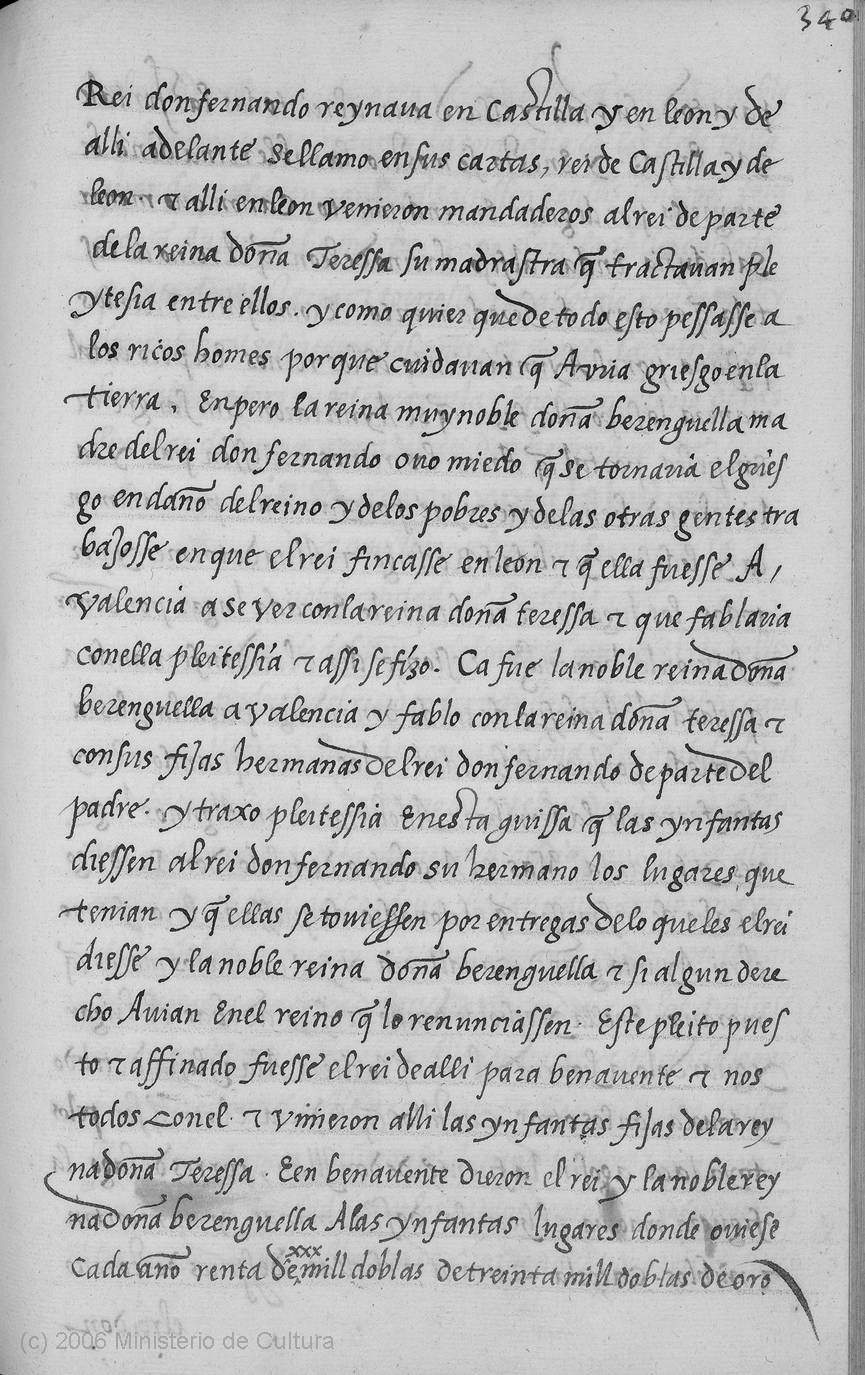 340
Rei don fernando reynaua en Castilla y en leon y de
alli adelante se llamo en sus cartas, rei de Castilla y de
leon. τ alli en leon venieron mandaderos al rei de parte
de la reina doña Teressa su madrastra q̃ tractauan ple
ytesia entre ellos. y como quier que de todo esto pessasse a
los ricos homes por que cuidauan q̃ Auia griesgo en la
tierra, Enpero la reina muy noble doña berenguella ma
dre del rei don fernando ouo miedo q̃ se tornaria el gries
go en daño del reino y de los pobres y de las otras gentes tra
baJosse en que el rei fincasse en leon τ q̃ ella fuesse A,
Valencia a se ver con la reina doña teressa τ que fablaria
con ella pleitessia τ assi se fizo. Ca fue la noble reina doña
berenguella a valencia y fablo con la reina doña teressa τ
con sus fiJas hermanas del rei don fernando de parte del
padre. y traxo pleitessia En esta guissa q̃ las ynfantas
diessen al rei don fernando su hermano los lugares, que
tenian y q̃ ellas se touiessen por entregas de lo que les el rei
diesse y la noble reina doña berenguella τ si algun dere
cho Auian En el reino q̃ lo renunciassen. Este pleito pues
to τ affinado fuesse el rei de alli para benauente τ nos
todos con el. τ vinieron alli las ynfantas fiJas de la rey
na doña Teressa. E en benauente dieron el rei y la noble rey
na doña berenguella A las ynfantas lugares donde ouiese
xxx
Cada año renta de mill doblas de treinta mill doblas de oro
(c) 2006 Ministerio de Cultura